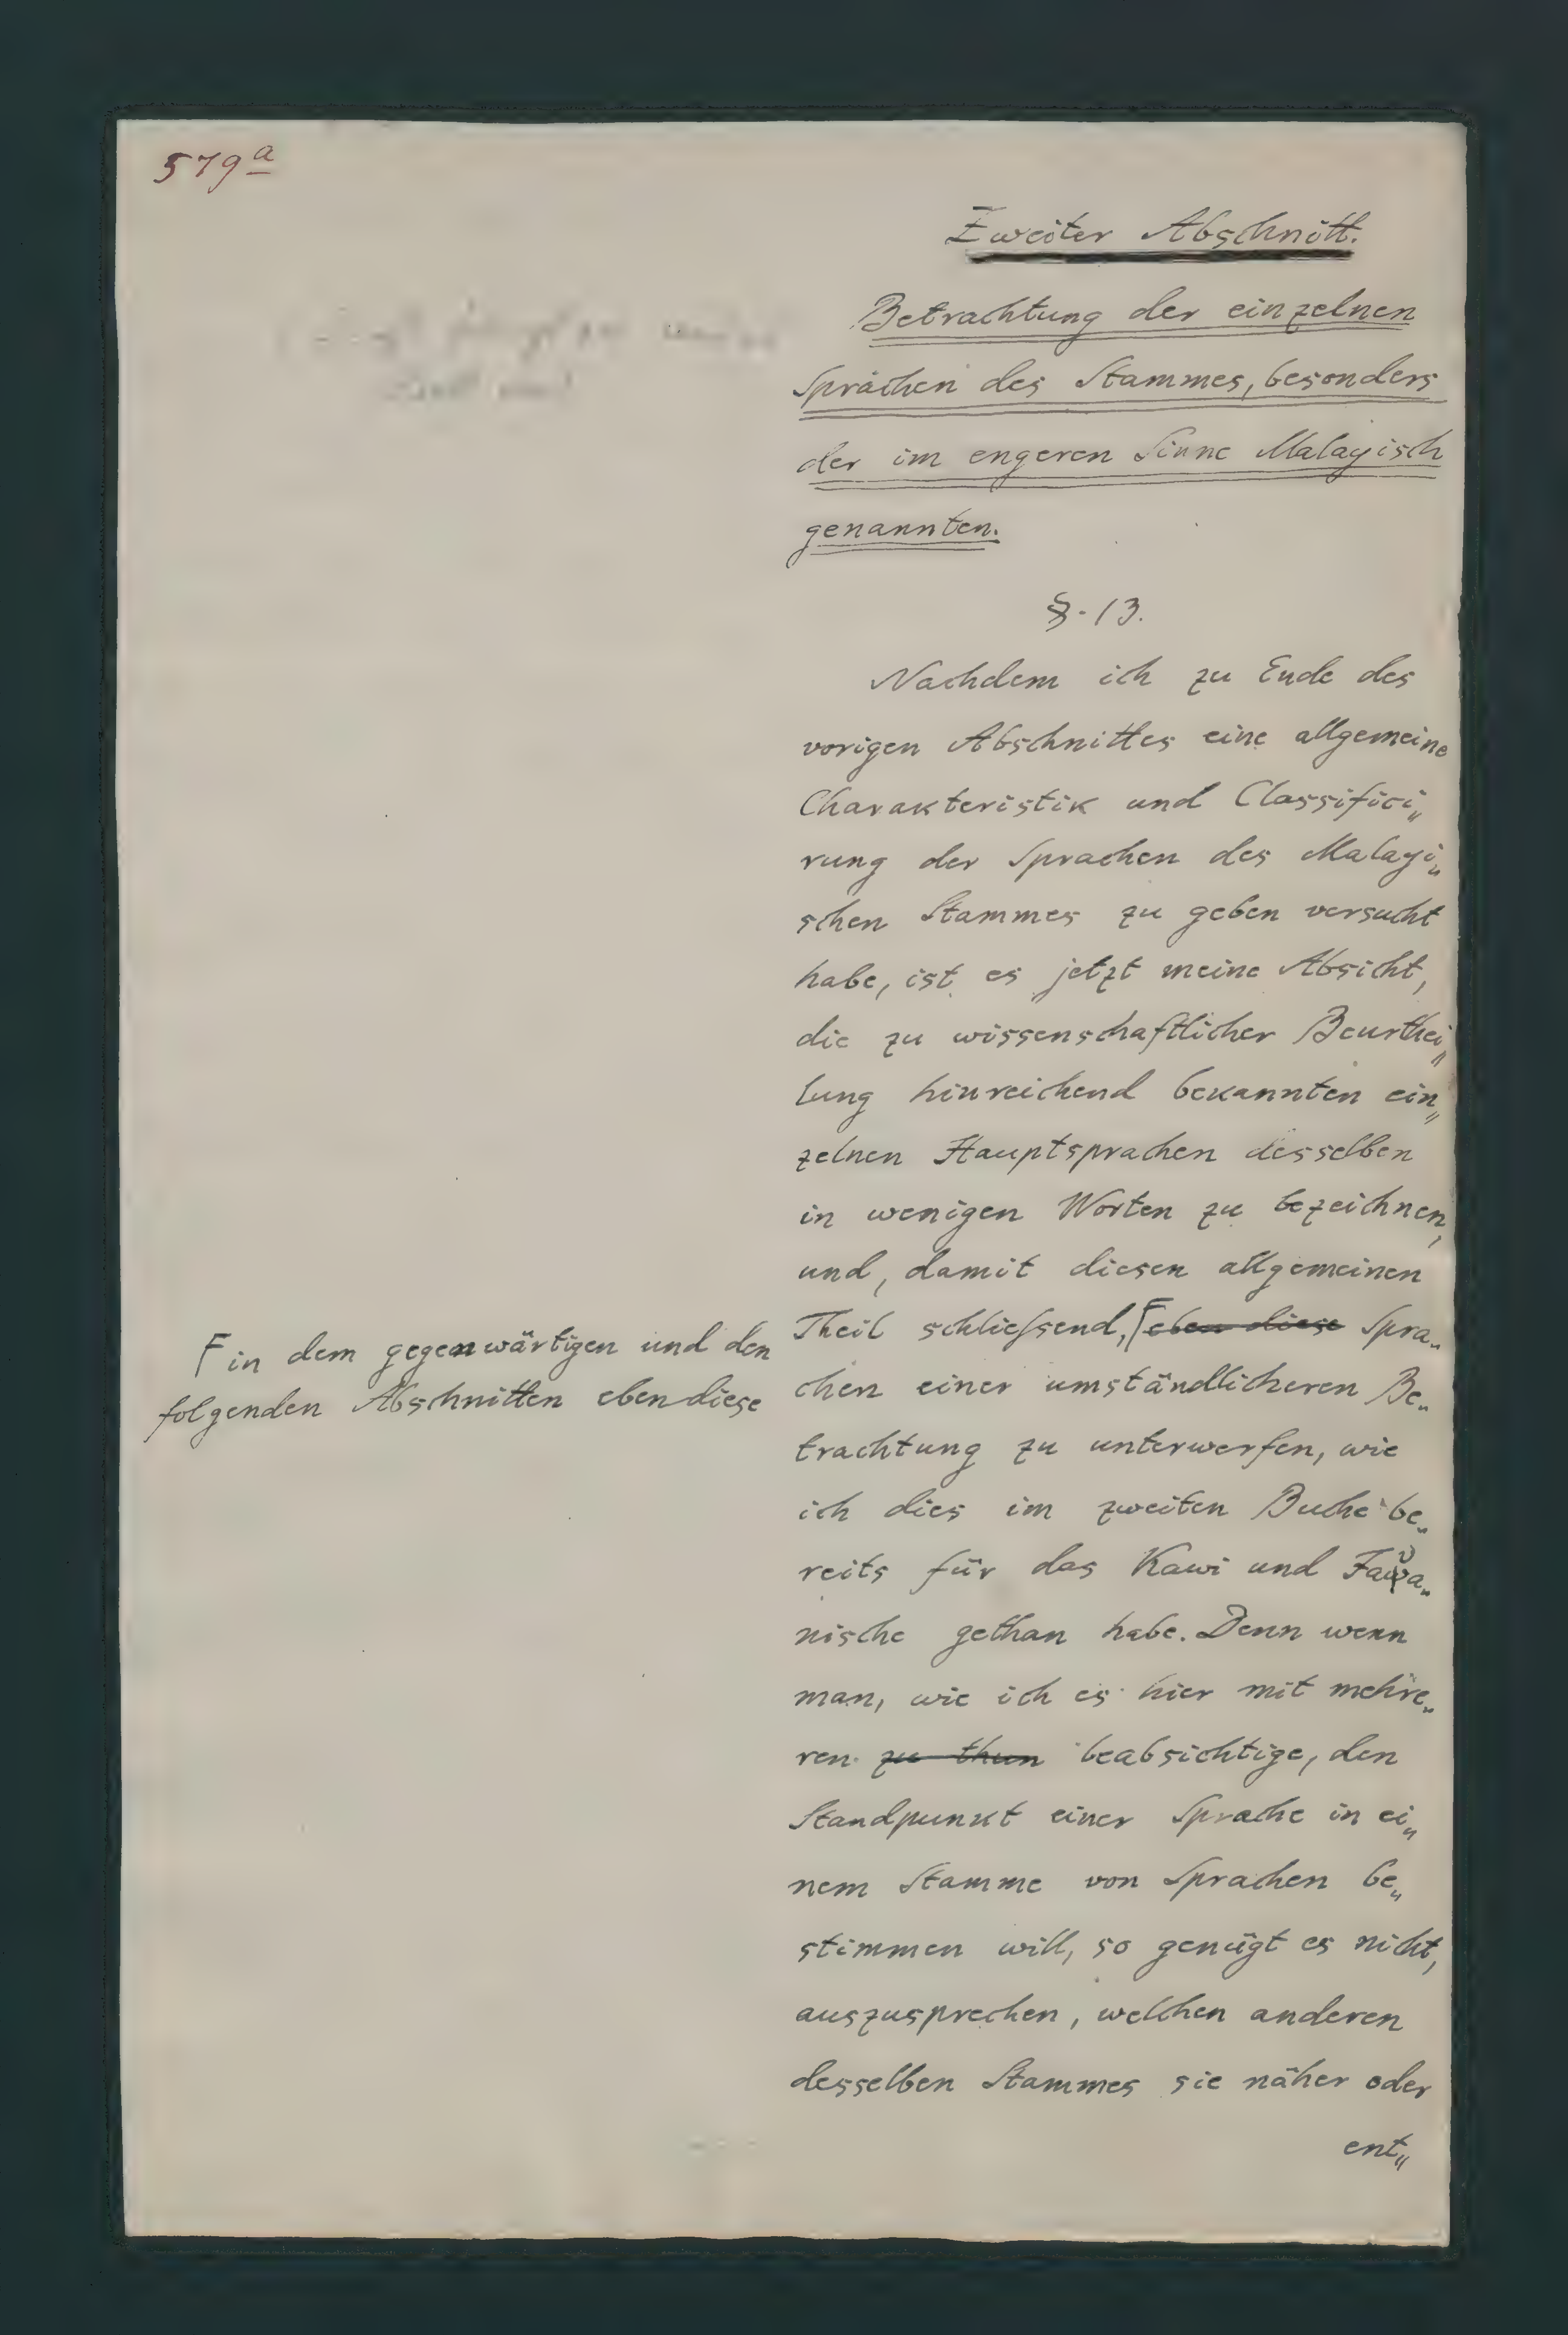 579a
Zweiter Abschnitt.
Betrachtung der einzelnen
Sprachen des Stammes, besonders
der im engeren Sinne Malayisch
genannten.
§. 13.
Nachdem ich zu Ende des
vorigen Abschnittes eine allgemeine
Charakteristik und Classifici„
rung der Sprachen des Malayi„
schen Stammes zu geben versucht
habe, ist es jetzt meine Absicht,
die zu wissenschaftlicher Beurthei„
lung hinreichend bekannten ein„
zelnen Hauptsprachen desselben
in wenigen Worten zu bezeichnen,
und, damit diesen allgemeinen
Theil schließend, Γ eben diese Spra„
chen einer umständlicheren Be„
trachtung zu unterwerfen, wie
ich dies im zweiten Buche be„
reits für das Kawi und Java„
nische gethan habe. Denn wenn
man, wie ich es hier mit mehre„
ren zu thun beabsichtige, den
Standpunkt einer Sprache in ei„
nem Stamme von Sprachen be„
stimmen will, so genügt es nicht,
auszusprechen, welchen anderen
desselben Stammes sie näher oder
ent„
Γ in dem gegenwärtigen und den
folgenden Abschnitten eben diese